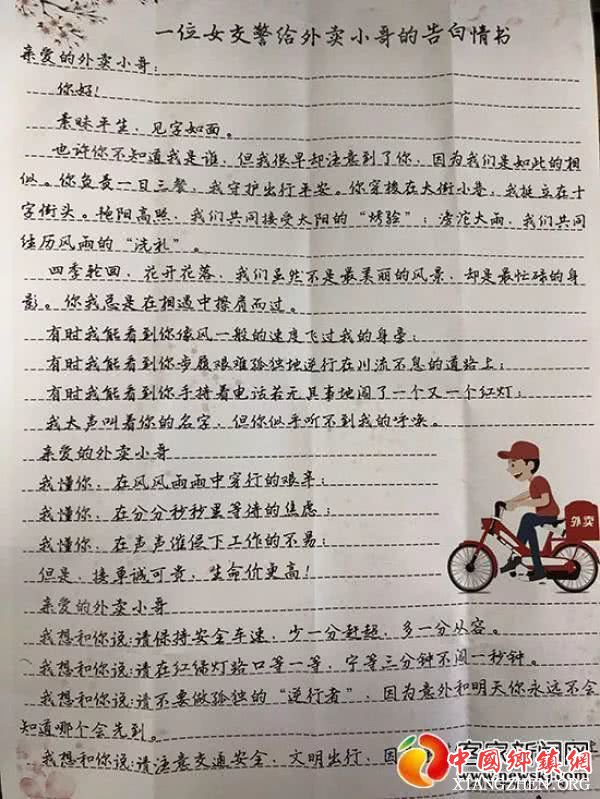 一位女交警给外卖小哥的告白情书
亲爱的外卖小哥：
你好！
素昧平生，见字如面。
也许你不知道我是谁，但我很早却注意到了你，因为我们是如此的相
似。你负责一日三餐，我守护出行平安。你穿梭在大街小巷，我挺立在十
字街头。艳阳高照，我们共同接受太阳的“烤验”；滂沱大雨，我们共同
经历风雨的“洗礼”。
四季轮回，花开花落，我们虽然不是最美丽的风景，却是最忙碌的身
影。你我总是在相遇中擦肩而过。
有时我能看到你像风一般的速度飞过我的身旁；
有时我能看到你步履艰难孤独地逆行在川流不息的道路上；
有时我能看到你手持着电话若无其事地闯了一个又一个红灯；
我大声叫着你的名字，但你似乎听不到我的呼唤。
亲爱的外卖小哥
我懂你，在风风雨雨中穿行的艰辛；
我懂你，在分分秒秒里等待的焦虑；
我懂你，在声声催促下工作的不易；
但是，接单诚可贵，生命价更高！
外卖
亲爱的外卖小哥
我想和你说：请保持安全车速，少一分赶超，多一分从容。
我想和你说：请在红绿灯路口等一等，宁等三分钟不闯一秒钟。
我想和你说：请不要做孤独的“逆行者”，因为意外和明天你永远不会
知道哪个会先到。
我想和你说：请注意交通安全，文明出行，因
客家新闻网
www.newskj.com
中國鄉鎮網
XIANGZHEN.ORG